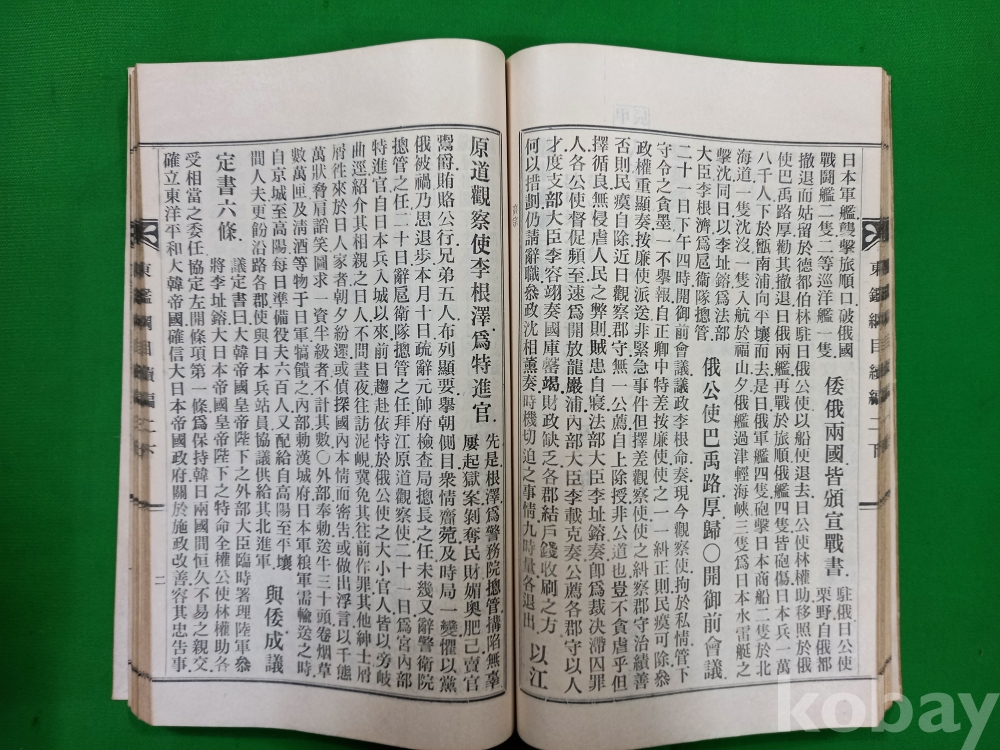 日本軍艦襲擊旅順口破俄國
戰鬪艦二隻二等巡洋艦一隻
倭俄兩國皆頒宣戰書
駐俄日公使
栗野自俄都
撤退而姑留於德都伯林駐日俄公使以船便退去日公使林權助移照於俄
使巴禹路厚勸其撤退日俄兩艦再戰於旅順俄艦四隻皆砲傷日本兵一萬
八千人下於甑南浦向平壤而去是日俄軍艦四隻砲擊日本商船二隻於北
海道一隻沈沒一隻入航於福山夕俄艦過津輕海峽三隻爲日本水雷艇之
擊沈同日以李址鎔爲法部
大臣李根濟爲扈衞隊摠管
俄公使巴禹路厚歸〇開御前會議
二十一日下午四時開御前會議議政李根命奏現今觀察使拘於私情管下
守令之貪墨一不擧報自正卿中特差按廉使使之一一糾正則民瘼可除叅
政權重顯奏按廉使派送非緊急事件但擇差觀察使使之糾察郡守治績善
否則民瘼自除近日觀察郡守無一公薦自上除授非公道也豈不貪虐乎但
擇循良無侵虐人民之弊則賊患自寢法部大臣李址鎔奏卽爲裁决滯囚罪
人各公使督促頻至速爲開放龍巖浦內部大臣李載克奏公薦各郡守以人
才度支部大臣李容翊奏國庫罄竭財政缺乏各郡結戶錢收刷之方
何以措劃仍請辭職叅政沈相薰奏時機切迫之事情九時量各退出
以江
東鑑綱目續編 二下
原道觀察使李根澤爲特進官
先是根澤爲警務院摠管搆陷無辜
屢起獄案剝奪民財媚奧肥己賣官
鬻爵賄賂公行兄弟五人布列顯要擧朝側目衆情齎菀及時局一變懼以黨
俄被禍乃思退步本月十日疏辭元帥府檢查局摠長之任未幾又辭警衞院
摠管之任二十日辭扈衞隊摠管之任拜江原道觀察使二十一日爲宮內部
特進官自日本兵入城以來前日趨赴依恃於俄公使之大小官人皆以旁岐
曲逕紹介其相親之日人不問晝夜往訪泥峴冀免其往前作罪其他紳士屑
屑徃來於日人家者朝夕紛遝或偵探國內本情而密告或做出浮言以千態
萬狀脅肩謟笑圖求一資半級者不計其數〇外部奉勅送牛三十頭卷烟草
數萬匣及淸酒等物于日軍犒饋之內部勅漢城府日本軍粮軍需輸送之時
自京城至高陽每日準備役夫六百人又配給自高陽至平壤
間人夫更飭沿路各郡使與日本兵站員協議供給其北進軍
與倭成議
定書六條
議定書曰大韓帝國皇帝陛下之外部大臣臨時署理陸軍叅
將李址鎔大日本帝國皇帝陛下之特命全權公使林權助各
受相當之委任協定左開條項第一條爲保持韓日兩國間恒久不易之親交
確立東洋平和大韓帝國確信大日本帝國政府關於施政改善容其忠告事
東鑑綱目續編 二下
二
kobay